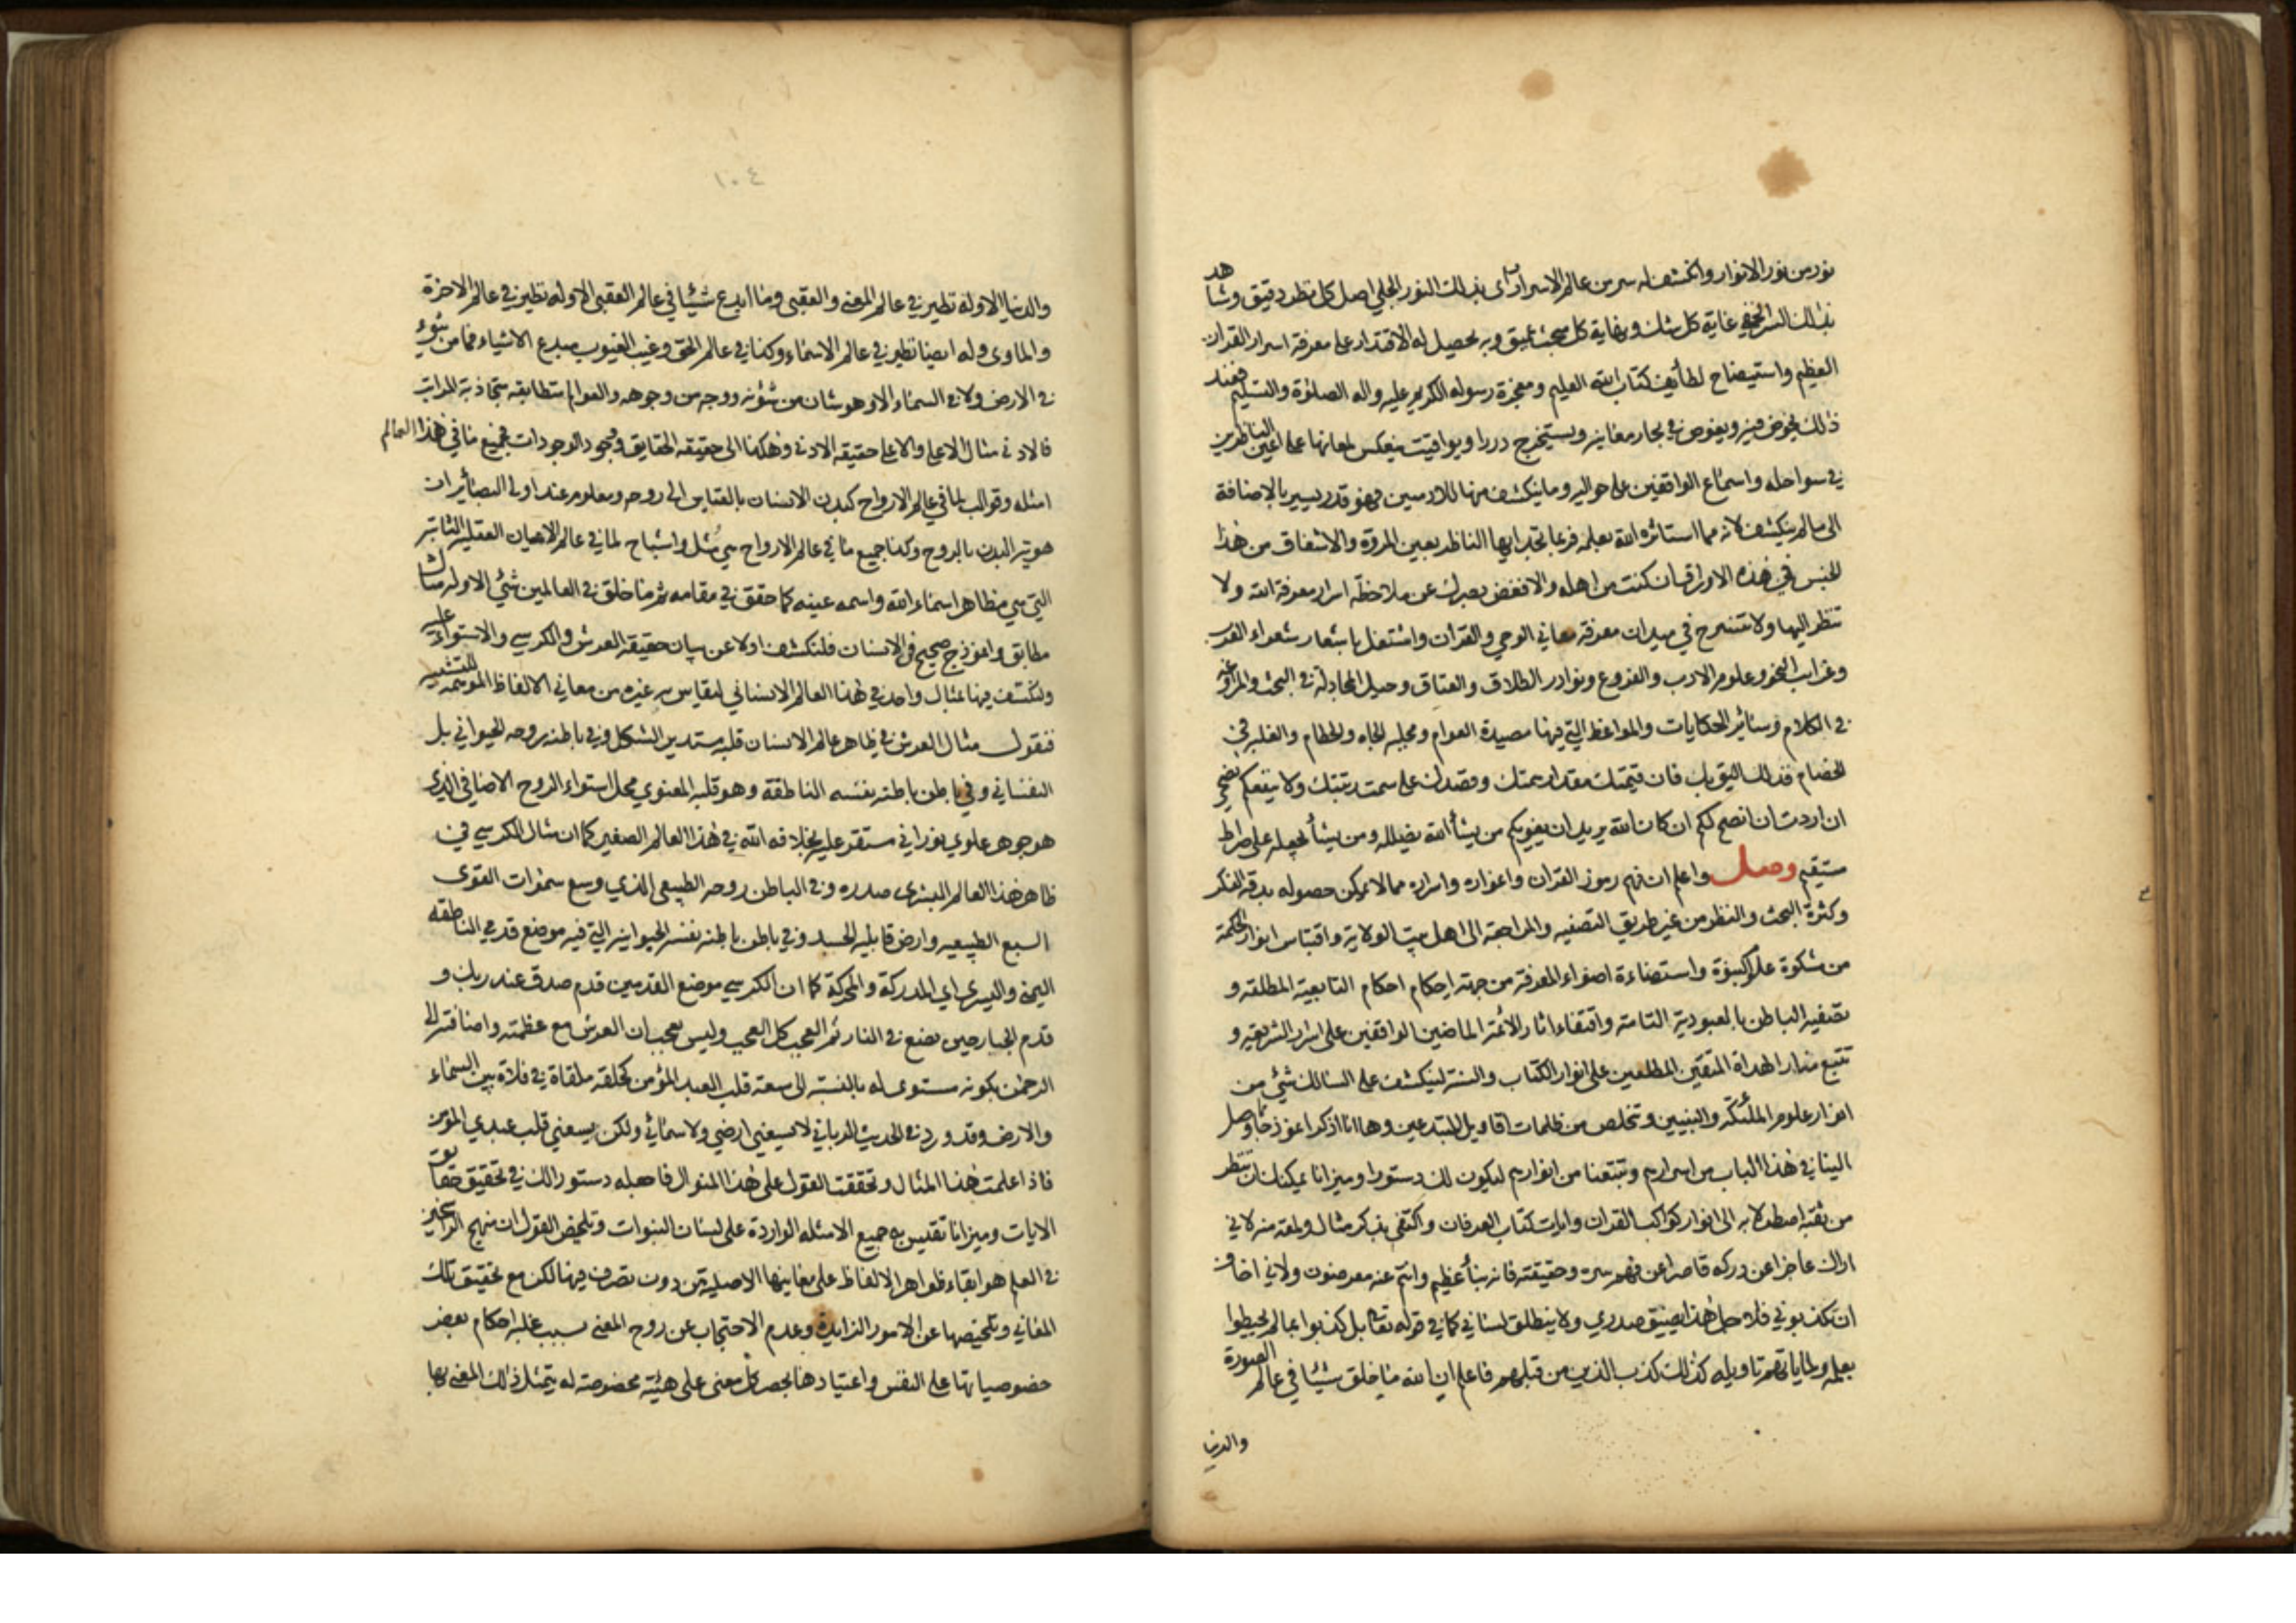 نور من نور الانوار وانكشف له سر من عالم الاسرار رای بذلك النور الجلي اصل كل نظر دقيق وشاهد
بذلك السر الخفي غاية كل شك ونهاية كل مبحث عميق وبه يحصيل له الاقتدار على معرفة اسرار القران
العظيم واستيضاح لطأيف كتاب الله العليم ومعجزة رسوله الكريم عليه واله الصلوة والتسليم فعند
ذلك يخوض فيه ويغوص في بحار معانيه ويستخرج دررا ويواقيت ينعكس لمعانها على اعين الناظرين
في سواحله واسماع الواقفين على حواليه وما ينكشف منها للادميين فهو قدر يسير بالاضافة
الى ما لم ينكشف لانه مما استاثره الله بعلمه فرعا تجد ايها الناظر بعين المروة والاشفاق من هذا
الجنس في هذه الاوراق ان كنت من اهله والا فغض بصرك عن ملاحظة اسرار معرفة الله ولا
تنظر اليها ولا تنسرح في ميدان معرفة معاني الوحي والقران واشتغل باشعار شعراء العرب
وغرايب النحو وعلوم الادب والفروع ونوادر الطلاق والعتاق وحيل المجادلة في البحث والمراوغة
في الكلام وسائر الحكايات والمواعظ التي فيها مصيدة العوام ومجلبه الجاه والحطام والغلبه في
الخصام فذلك اليق بك فان قيمتك مقدار همتك وقصدك على سمت رتبتك ولا ينفعكم نصحي
ان اردت ان انصح لكم ان كان الله يريد ان يغويكم من يشأ الله يضلله ومن يشأ يجعله على صراط
مستقيم وصل واعلم ان فهم رموز القران واغواره واسراره مما لا يمكن حصوله بدقه الفكر
وكثرة البحث والنظر من غير طريق التصفيه والمراجعة الى اهل بيت الولاية واقتباس انوار الحكمة
من مشكوة علم النبوة واستضاءة اضواء المعرفة من جهة احكام احكام التابعية المطلقه و
تصفية الباطن بالعبودية التامة واقتفاء اثار الائمة الماضين الواقفين على اسرار الشريعة و
تتبع منار الهداة المتقين المطلعين على انوار الكتاب والسنة لينكشف على السالك شئ من
انوار علوم الملئكة والنبيين وتخلص من ظلمات اقاويل المبتدعين وها انا اذكر انموذجا وصل
الينا في هذا الباب من اسرارهم وتبتعنا من انوارهم ليكون لك دستورا وميزانا يمكنك ان تنظر
من ثقبة اصطرلابه الى انوار كواكب القران وايات كتاب العرفان واكتفي بذكر مثال ولمعة منه لاني
اراك عاجزا عن دركه قاصرا عن فهم سره وحقيقته فانه نبأ عظيم وانتم عنه معرضون ولاني اخاف
ان تكذبوني فلاجل هذا يضيق صدري ولا ينطلق لساني كما في قوله تعا بل كذبوا بما لم يحيطوا
بعلمه ولما ياتهم تاويله كذلك كذب الذين من قبلهم فاعلم ان الله ما خلق شيئا في عالم الصورة
والدنيا
١٠٤
والدنيا الا وله نظير في عالم المعنى والعقبى وما ابدع شيئا في عالم العقبى الا وله نظير في عالم الاخرة
والماوى وله ايضا نظير في عالم الاسماء وكذا في عالم الحق وغيب الغيوب مبدع الاشياء فما من شئ
في الارض ولا في السماء الا وهو شان من شؤنه ووجه من وجوهه والعوالم متطابقه متحاذية المراتب
فالادنى مثال الاعلى والاعلى حقيقة الادنى وهكذا الى حقيقه الحقايق ووجود الوجودات فجميع ما في هذا العالم
امثله وقوالب لما في عالم الارواح كبدن الانسان بالقياس الى روحه ومعلوم عند اولى البصائر ان
هوية البدن بالروح وكذا جميع ما في عالم الارواح هي مثل واشباح لما في عالم الاعيان العقليه الثابته
التي هي مظاهر اسماء الله واسمه عينه كما حقق في مقامه ثم ما خلق في العالمين شئ الا وله مثال
مطابق وانموذج صحيح في الانسان فلنكشف اولا عن بيان حقيقة العرش والكرسي والاستواء عليه
ولنكشف فيها بمثال واحد في هذا العالم الانساني ليقاس به غيره من معاني الالفاظ الموهمه للتشبيه
فنقول مثال العرش في ظاهر عالم الانسان قلبه مستدير الشكل وفي باطنه روحه الحيواني بل
النفساني وفي باطن باطنه نفسه الناطقة وهو قلبه المعنوي محل استواء الروح الاضافي الذي
هو جوهر علوي نوراني مستقر عليه بخلافه الله في هذا العالم الصغير كما ان مثال الكرسي في
ظاهر هذا العالم البشرى صدره وفي الباطن روحه الطبيعي الذي وسع سموات القوى
السبع الطبيعيه وارض قابليه الجسد وفي باطن باطنه نفسه الحيوانيه التي فيه موضع قدمي الناطقه
اليمنى واليسرى اي المدركة والمحركة كما ان الكرسي موضع القدمين قدم صدق عند ربك و
قدم الجبار حين يضع في النار ثم العجب كل العجب وليس بعجب ان العرش مع عظمته واضافته الى
الرحمن بكونه مستوى له بالنسبة الى سعة قلب العبد المؤمن كحلقه ملقاة في فلاة بين السماء
والارض وقد ورد في الحديث الرباني لا يسعني ارضي ولا سمائي ولكن يسعني قلب عبدي المؤمن
فاذا علمت هذا المثال وتحققت القول على هذا المنوال فاجعله دستورا لك في تحقيق حقايق
الايات وميزانا تقيس به جميع الامثله الواردة على لسان النبوات وتلخيص القول ان منهج الراسخين
في العلم هو ابقاء ظواهر الالفاظ على معانيها الاصلية من دون تصرف فيها لكن مع تحقيق تلك
المعاني وتلخيصها عن الامور الزايدة وعدم الاحتجاب عن روح المعنى بسبب غلبه احكام بعض
خصوصياتها على النفس واعتيادها بحصر كل معنى على هيئة مخصوصة له يتمثل ذلك المعنى بها